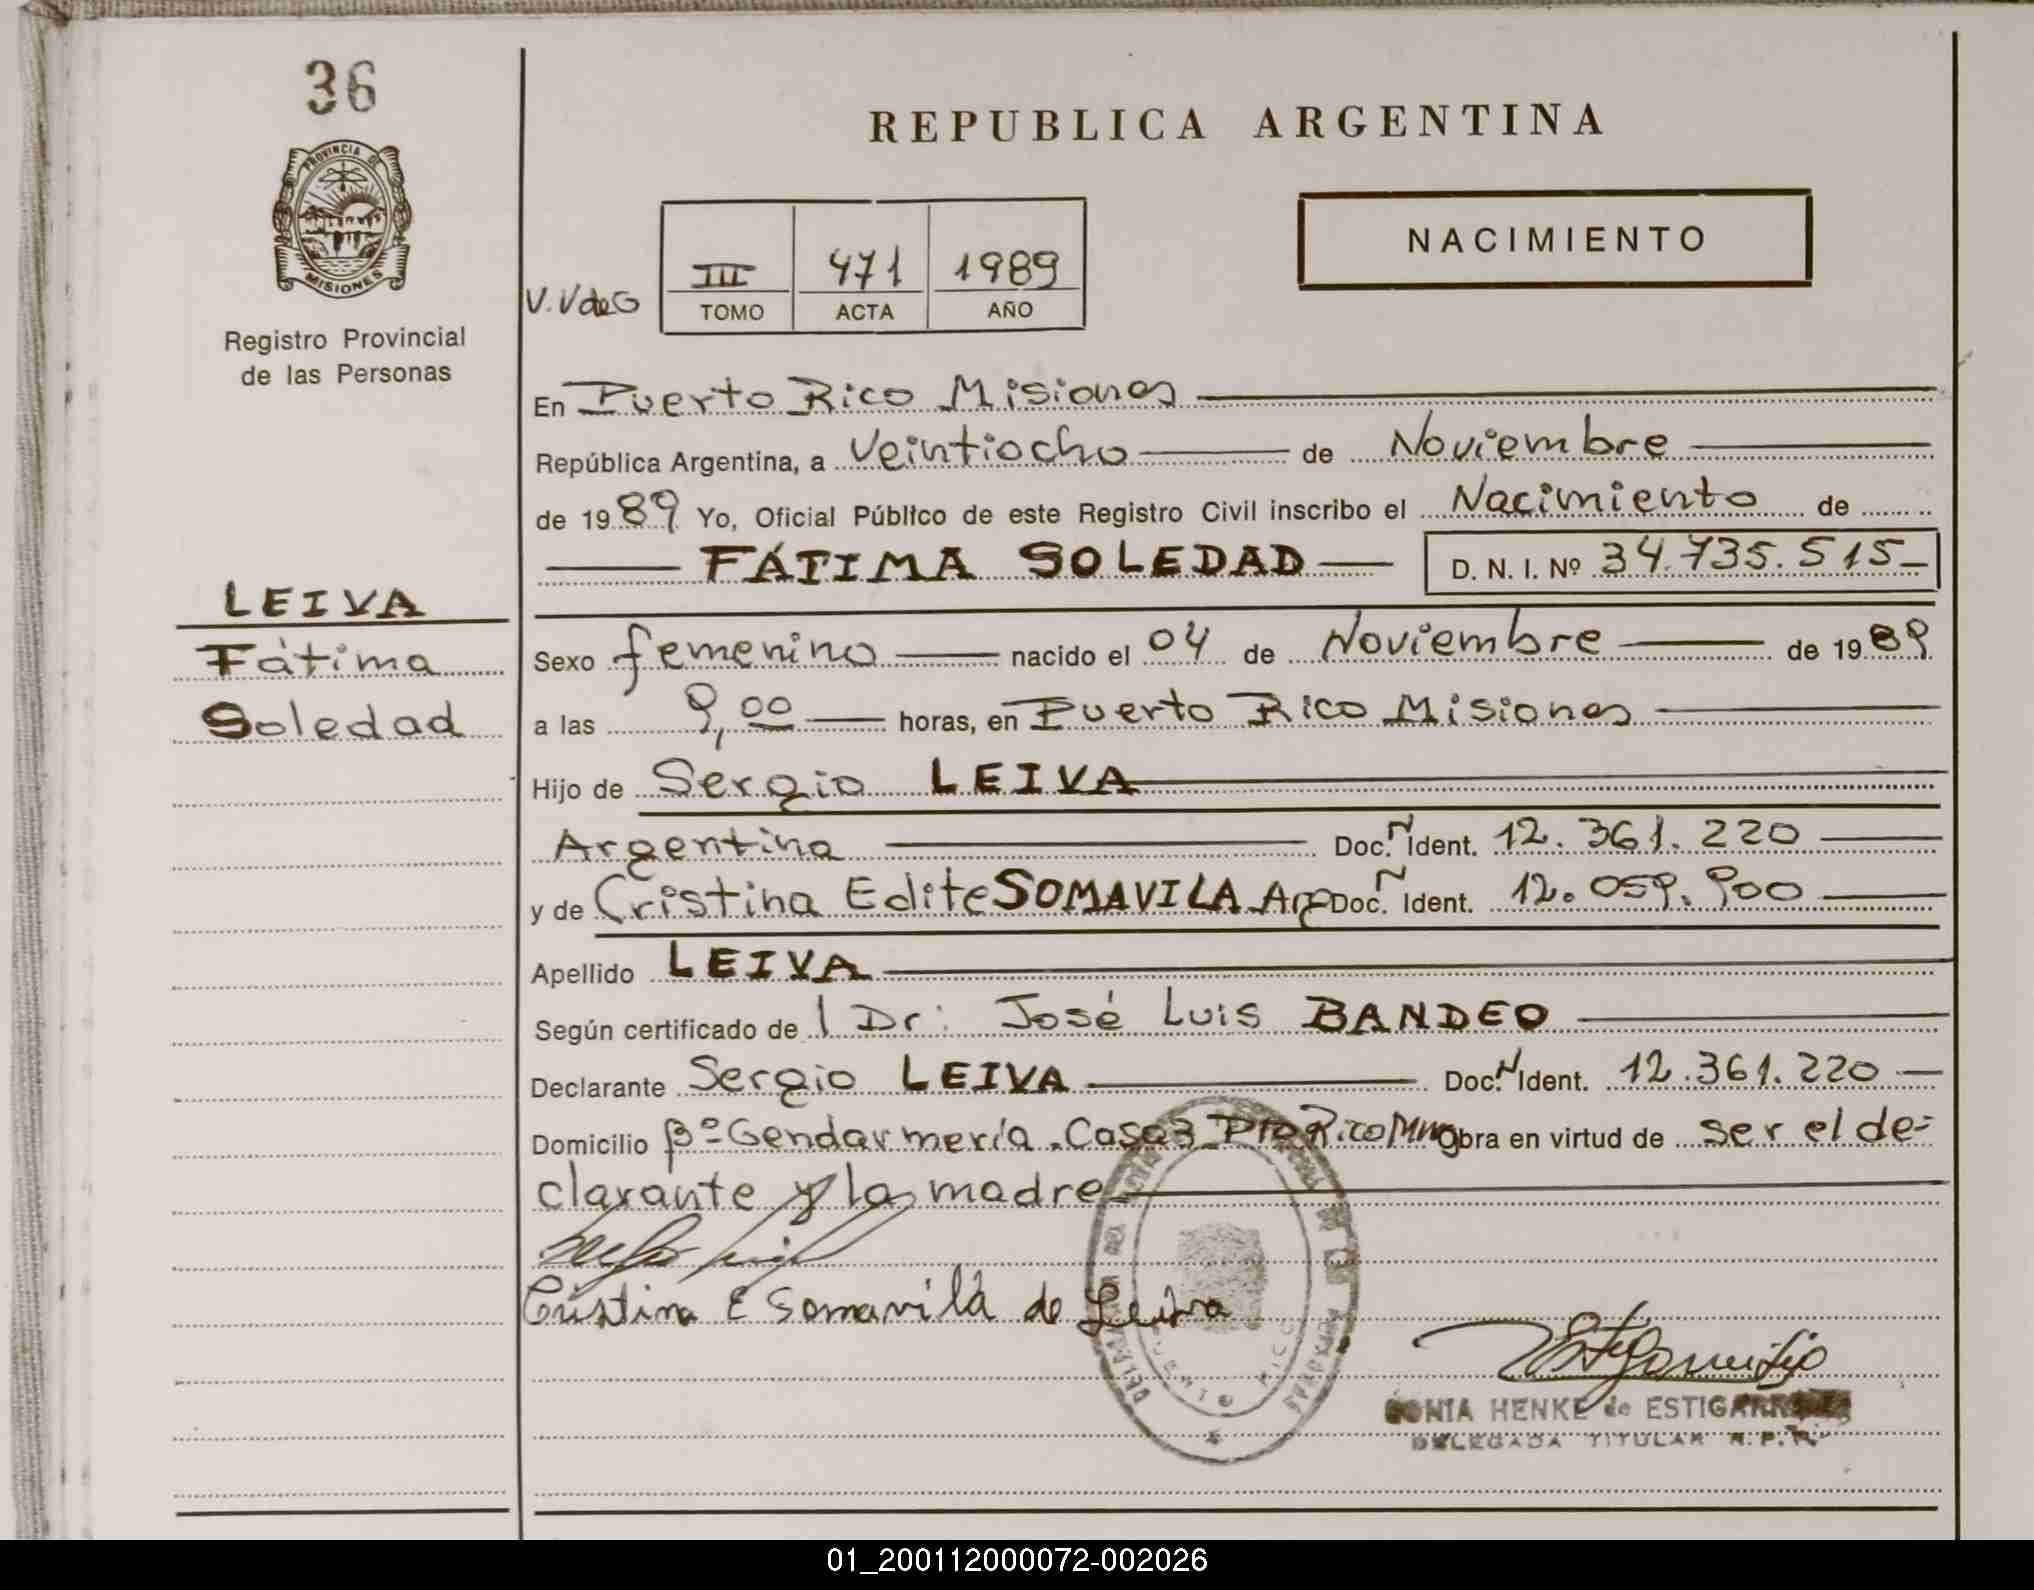 36
REPUBLICA ARGENTINA
PROVINCIA DE
MISIONES
Registro Provincial
de las Personas
NACIMIENTO
V.V de G
III 471 1989
TOMO ACTA AÑO
En Puerto Rico Misiones
República Argentina, a Veintiocho de Noviembre
de 1989 Yo, Oficial Público de este Registro Civil inscribo el Nacimiento de
FÁTIMA SOLEDAD D. N. I. Nº 34.735.515
LEIVA
Fátima
Soledad
Sexo femenino nacido el 04 de Noviembre de 1989
a las 9,00 horas, en Puerto Rico Misiones
Hijo de Sergio LEIVA
Argentina Doc. N Ident. 12.361.220
y de Cristina Edite SOMAVILA Arg Doc. N Ident. 12.059.900
Apellido LEIVA
Según certificado de l Dr: José Luis BANDEO
Declarante Sergio LEIVA Doc. N Ident. 12.361.220
Domicilio Bº Gendarmería. Casa 3 Pto Rico Mnes Obra en virtud de ser el de=
clarante y la madre
Cristina E Somavilá de Leiva
PUERTO RICO
SONIA HENKE de ESTIGARRIBIA
DELEGADA TITULAR R.P.P.
01_200112000072-002026